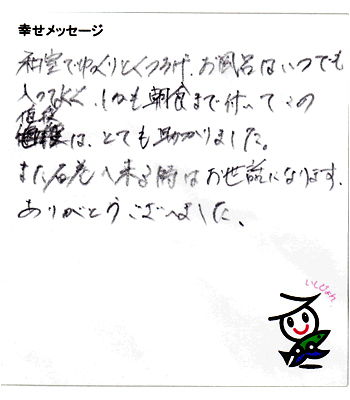 幸せメッセージ
和室でゆっくりとくつろげ、お風呂はいつでも
入ってよく、しかも朝食まで付いてこの
値段
は、とても助かりました。
また石巻へ来る時はお世話になります。
ありがとうございました。